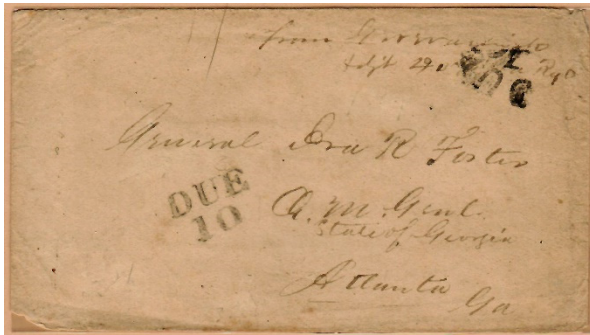 from
Adjt 29 Rg
General Ira R Foster
DUE
10
Q. M. Genl.
State of Georgia
Atlanta
Ga